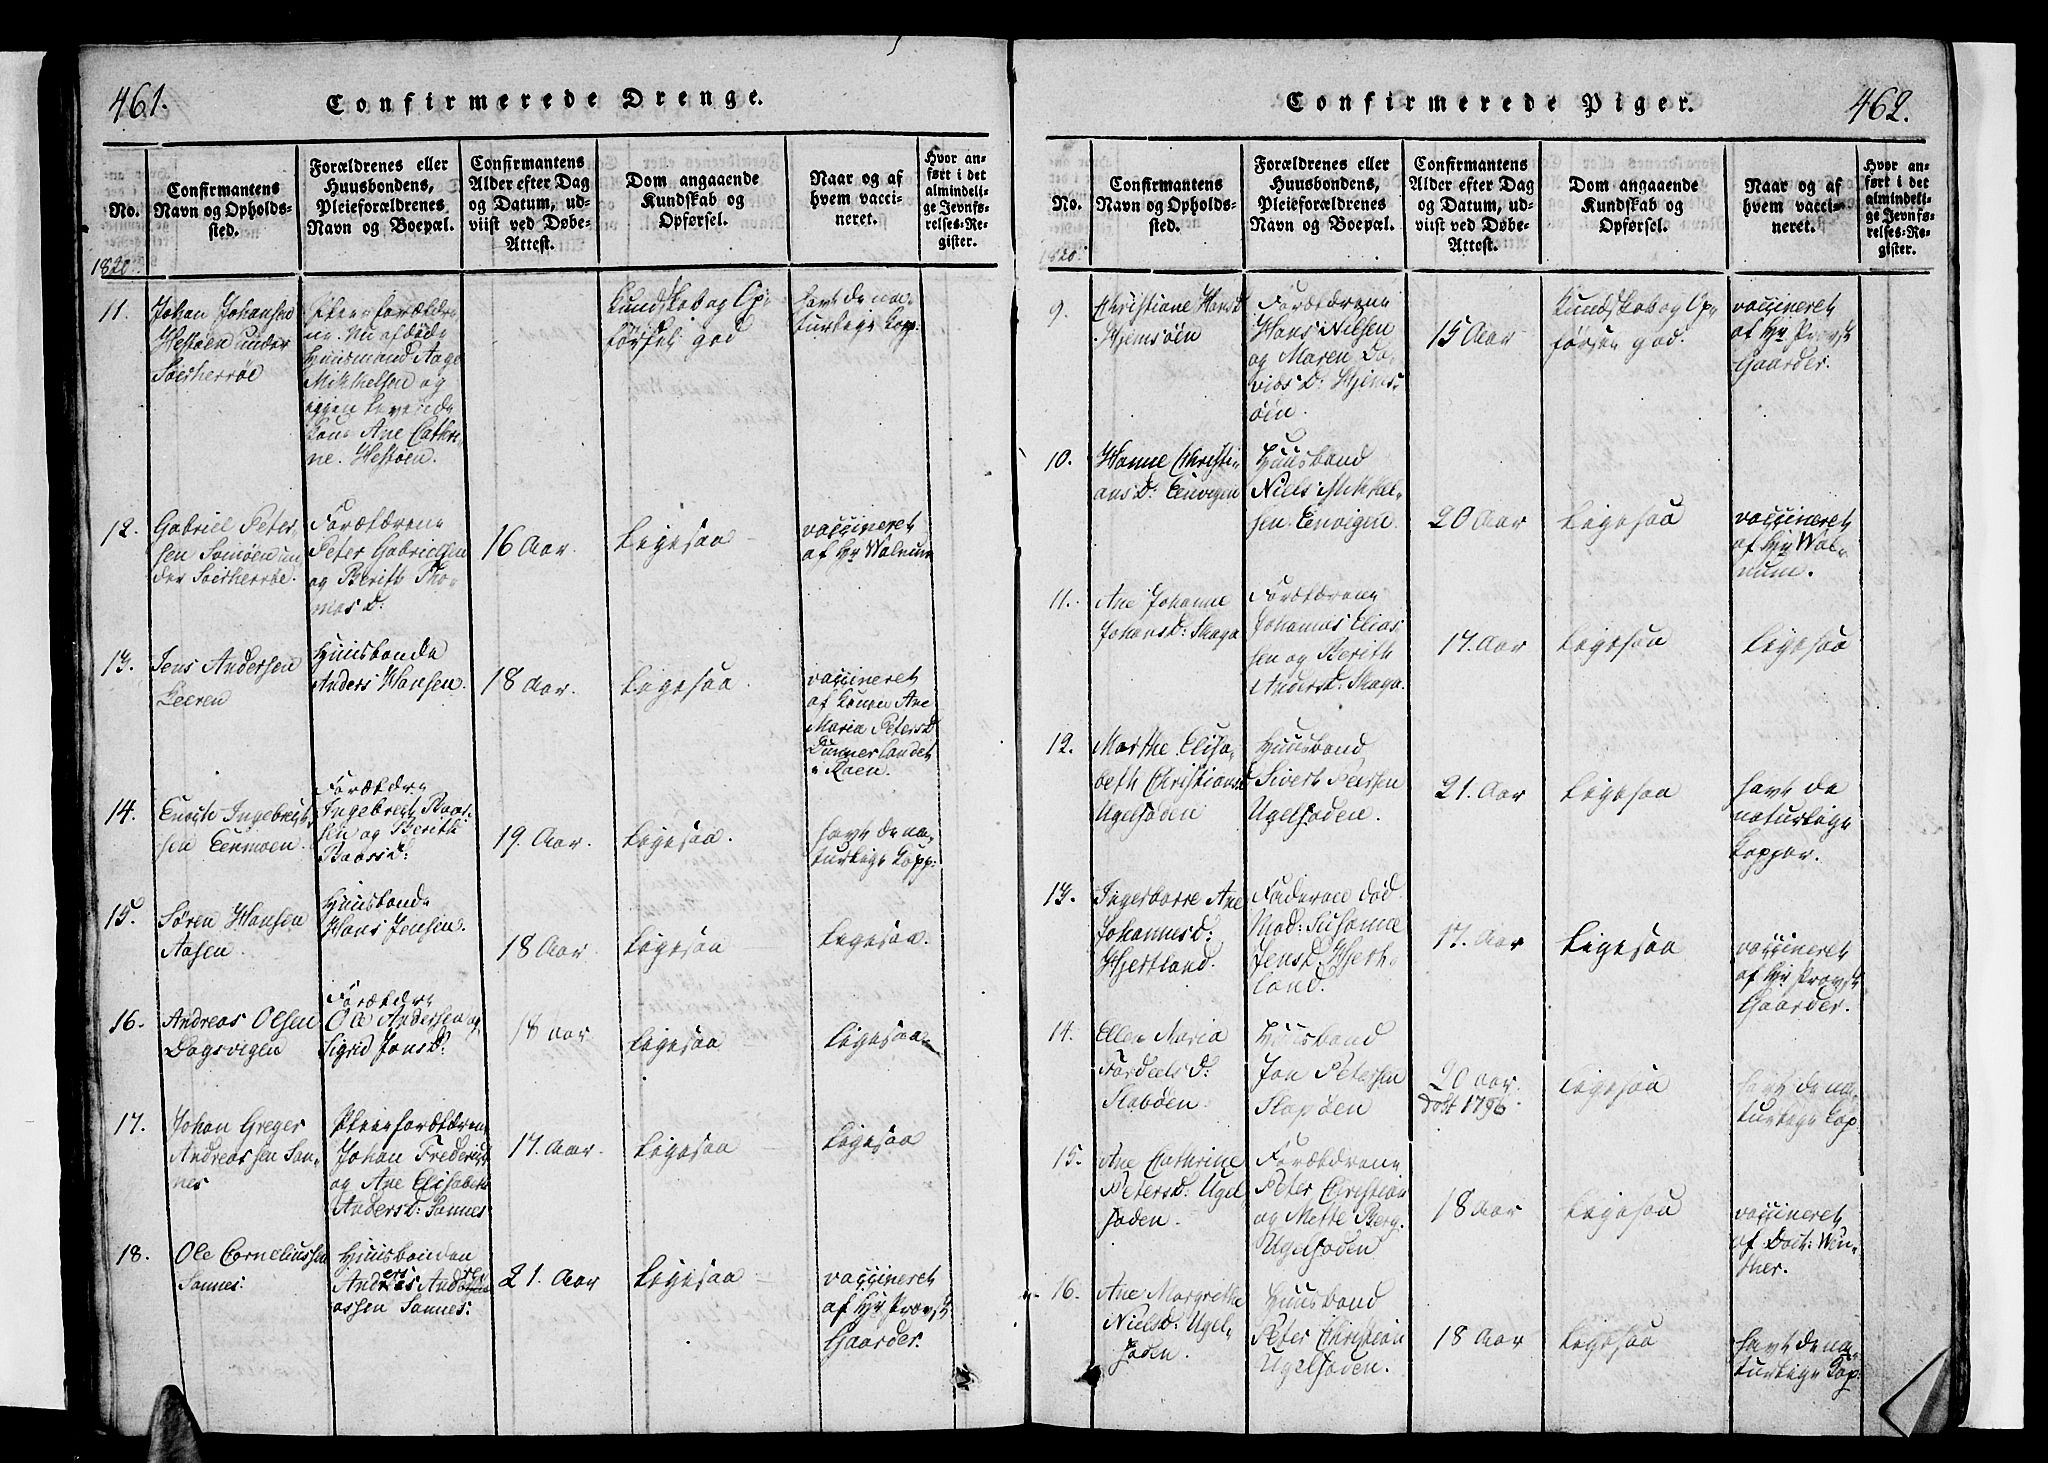 461.
Confirmerede Drenge.
No.
Confirmantens
Navn og Opholds-
sted.
Forældrenes eller
Huusbondens,
Pleieforældrenes
Navn og Boepæl.
Confirmantens
Alder efter Dag
og Datum, ud-
viist ved Døbe-
Attest.
Dom angaaende
Kundskab og
Opførsel.
Naar og af
hvem vacci-
neret.
Hvor an-
ført i det
almindeli-
ge Jevnfø-
relses-Re-
gister.
1820.
11.
Johan Johansen
Hestøen under
Pleieforældre
ne. Nu afdøde
Huusmand Aage
Mikkelsen og
igjen levende
Kone Ane Cathri-
ne. Hestøen.
Kundskab og Op-
førsel: god
havt de na-
turlige Kop:
12.
Gabriel Peter-
sen Somøen un-
der
Forældrene
Peter Gabrielsen
og Berith Tho-
mas D:
16 Aar.
Ligesaa
vaccineret
af Hr Walnum
13.
Jens Andersen
Leeren
Huusbonde
Anders Hansen.
18 Aar.
Ligesaa.
vaccineret
af Konen Ane
Maria Peters D
14.
Ingebregt-
sen
Forældre
Ingebregt Baar-
sen og Berith
Baarsd:
19. Aar.
Ligesaa.
havt de na-
turlige Kopp:
15.
Søren Hansen
Aasen.
Huusbonde
Hans Jensen.
18 Aar.
Ligesaa
Ligesaa.
16.
Andreas Olsen
Dagsvigen
Forældre
Ole Andersen og
Sigrid Jonsd:
18 aar
Ligesaa
Ligesaa
17.
Johan Greger
Andreassen San-
nes
Pleieforældrene
Johan Frederich
og Ane Elisabeth
Anders D: Sannes
17. aar.
Ligesaa
Ligesaa
18.
Ole Corneliussen
Sannes:
Huusbonden
assen Sannes:
21. Aar
Ligesaa
vaccineret
af Hr Provst
Gaarder.
462.
Confirmerede Piger.
No.
Confirmantens
Navn og Opholds-
sted.
Forældrenes eller
Huusbondens,
Pleieforældrenes
Navn og Boepæl.
Confirmantens
Alder efter Dag
og Datum, ud-
viist ved Døbe-
Attest.
Dom angaaende
Kundskab og
Opførsel.
Naar og af
hvem vacci-
neret.
Hvor an-
ført i det
almindeli-
ge Jevnfø-
relses-Re-
gister.
1820.
9.
Christiane Hansd
Hjemsøen
Forældrene
Hans Nilsen
og Maren Da-
vids D: Hjems-
øen.
15 Aar
Kundskab og Op-
førsel god.
vaccineret
af Hr Provst
Gaarder.
10.
Hanne Christi-
ans D:
Huusbond
Niels Mikkel-
sen
20 Aar
Ligesaa
vaccineret
af Hr Wal-
num.
11.
Ane Johanne
Johans D: Skaga
Forældrene
Johannes Elias-
sen og Berith
Anders D: Skaga.
17. Aar
Ligesaa
Ligesaa
12.
Marthe Elisa-
beth Christians D
Ugelsoden
Huusbond
Sivert Peersen
Ugelsoden.
21. Aar
Ligesaa
havt de
naturlige
Kopper.
13.
Ingeborre Ane
Johannes D:
Hjertland.
Faderen død
Mod: Susanne
Jens D Hjert-
land.
17. Aar
Ligesaa
vaccineret
af Hr Provst
Gaarder.
14.
Ellen Maria
Fordeels D:
Slapøen.
Huusbond
Jon Petersen
Slapøen
20 aar.
døbt 1796.
Ligesaa
havt de na-
turlige Kop
15.
Ane Cathrine
Peters D: Ugel-
soden.
Forældrene
Peter Christian
og Mette Berg.
Ugelsoden
18 Aar
Ligesaa
vaccineret
af Doct: Win-
ther.
16.
Ane Margrethe
Niels D: Ugel-
soden.
Huusbond
Peter Christian
Ugelsoden.
18 Aar
Ligesaa
havt de na-
turlige Kop.